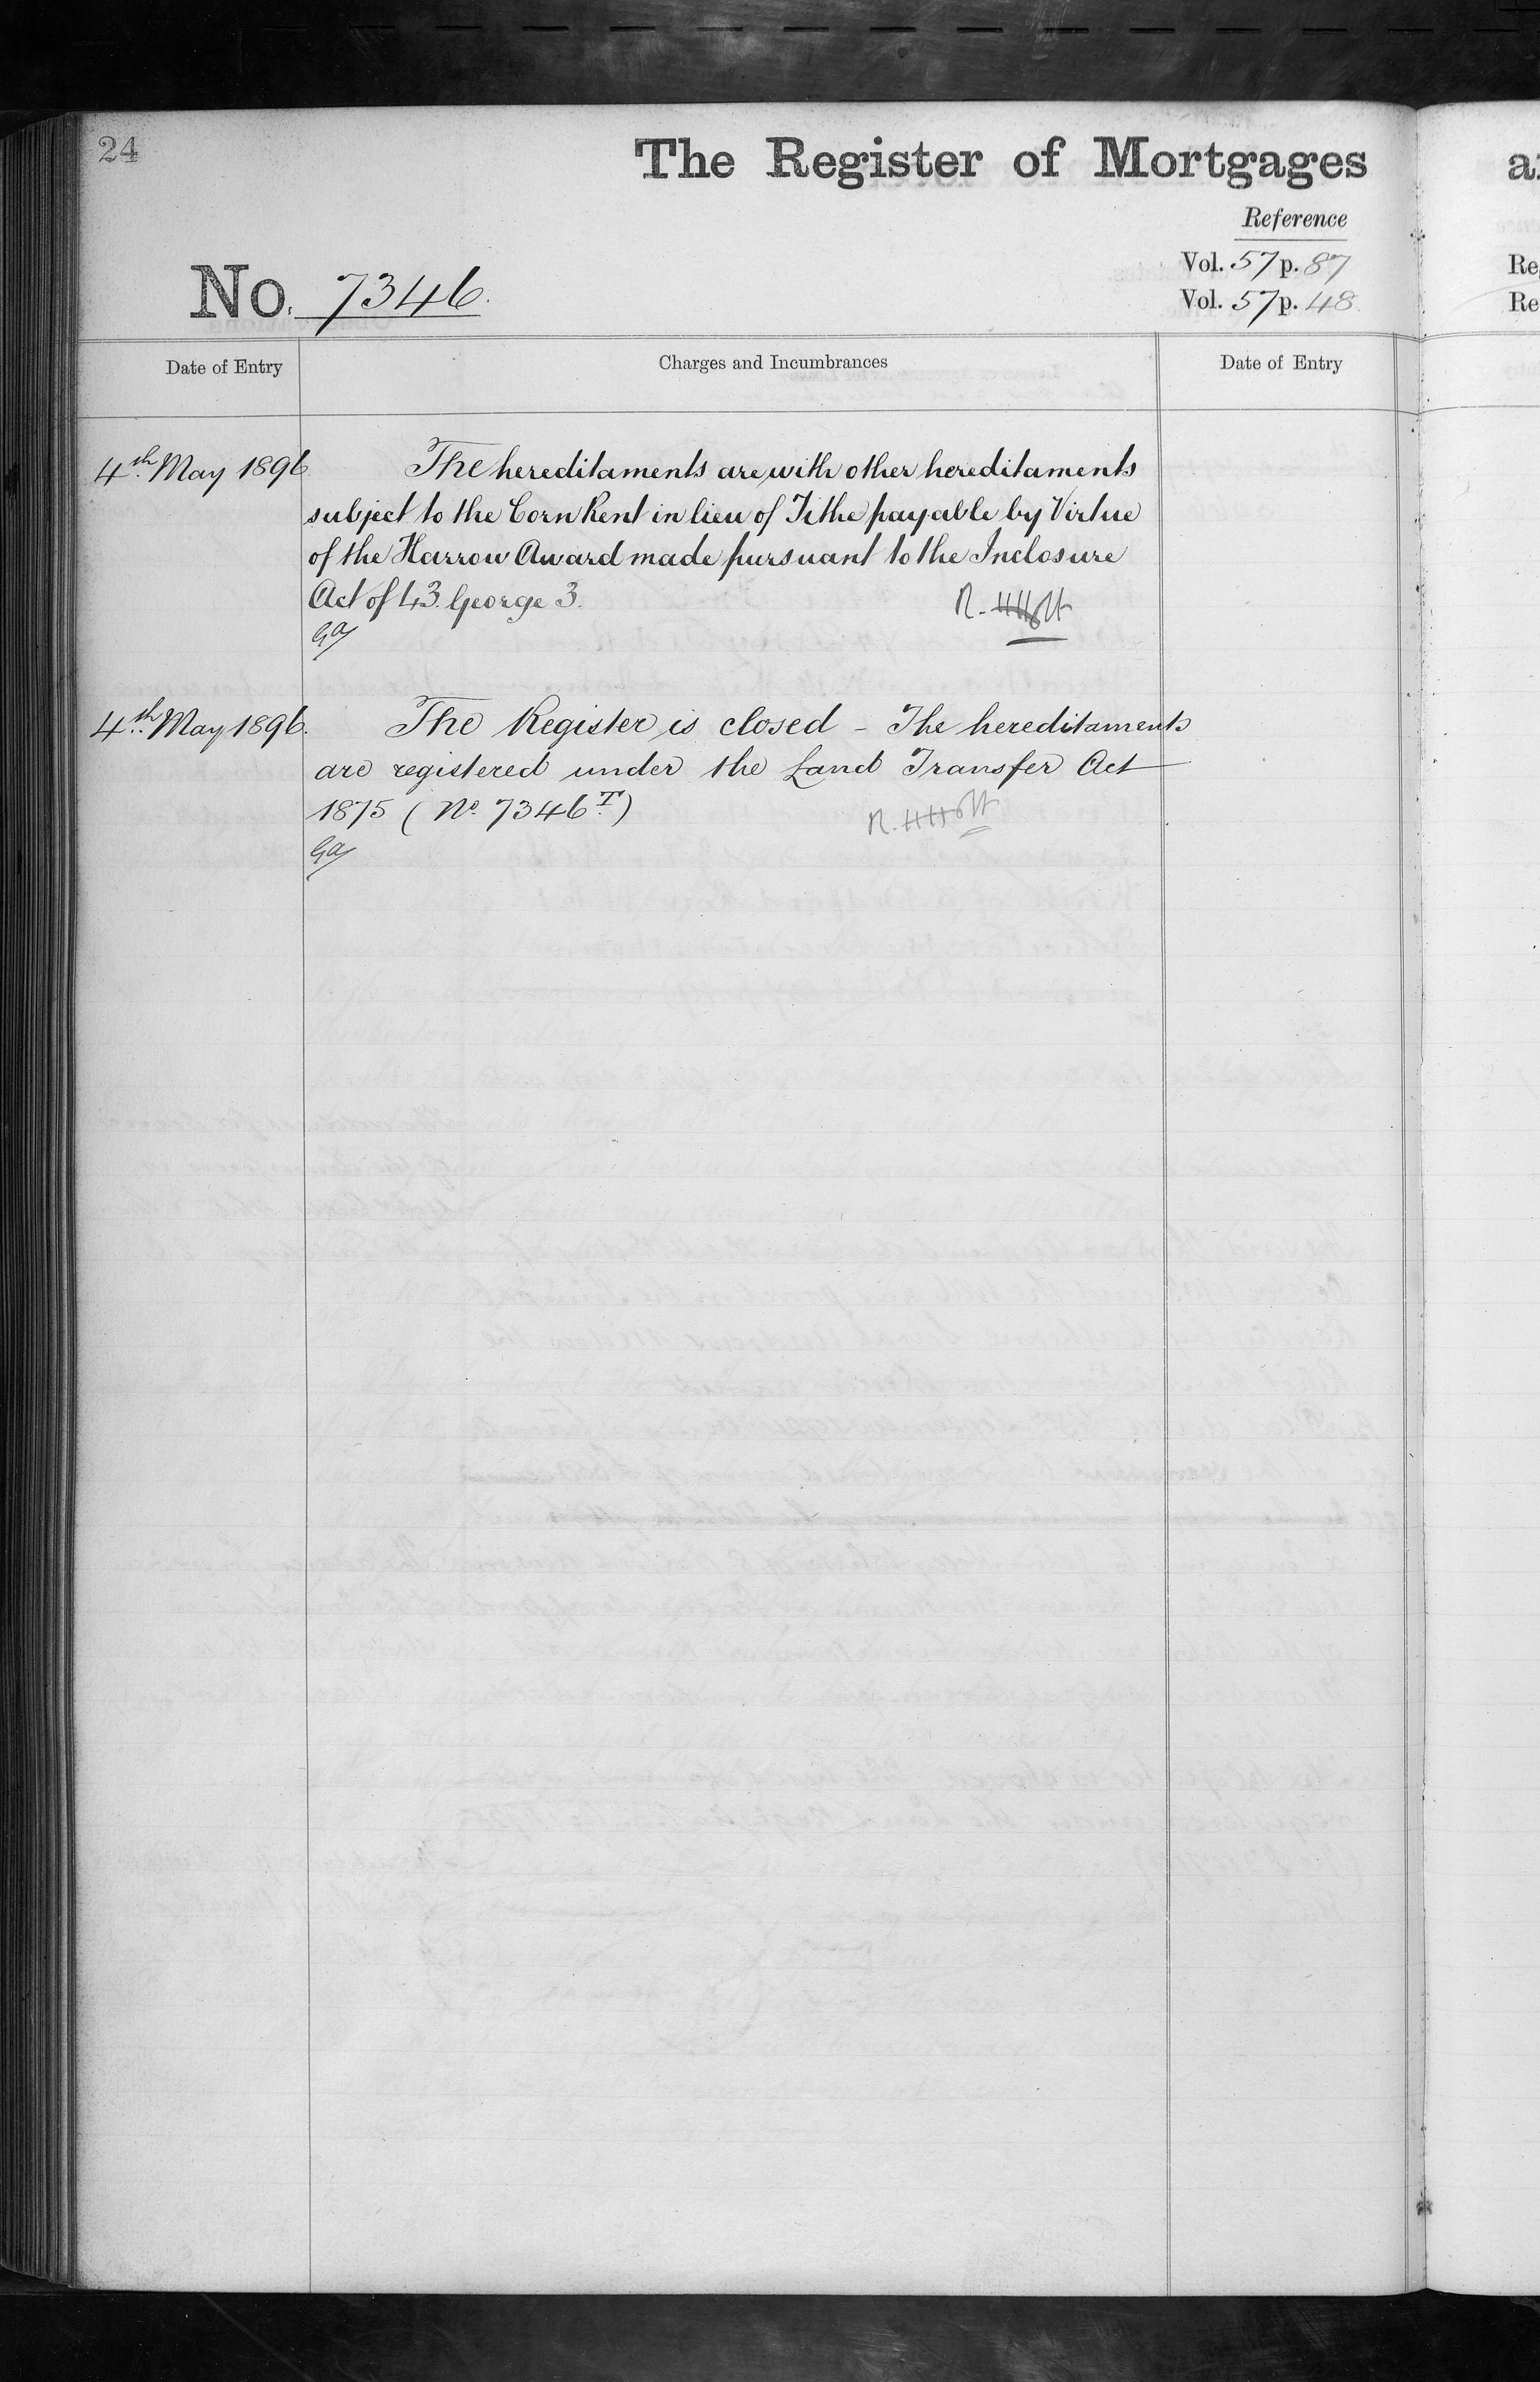 24
The Register of Mortgages
Reference
Vol. 57 p. 87
Vol. 57 p. 48
No. 7346.
Date of Entry
Charges and Incumbrances
Date of Entry
4th May 1896
The hereditaments are with other hereditaments
subject to the Corn Rent in lieu of Tithe payable by Virtue
of the Harrow Award made pursuant to the Inclosure
Act of 43. George 3.
4th May 1896.
The Register is closed - The hereditaments
are registered under the Land Transfer Act
1875 (No. 7346T.)
Re
Re